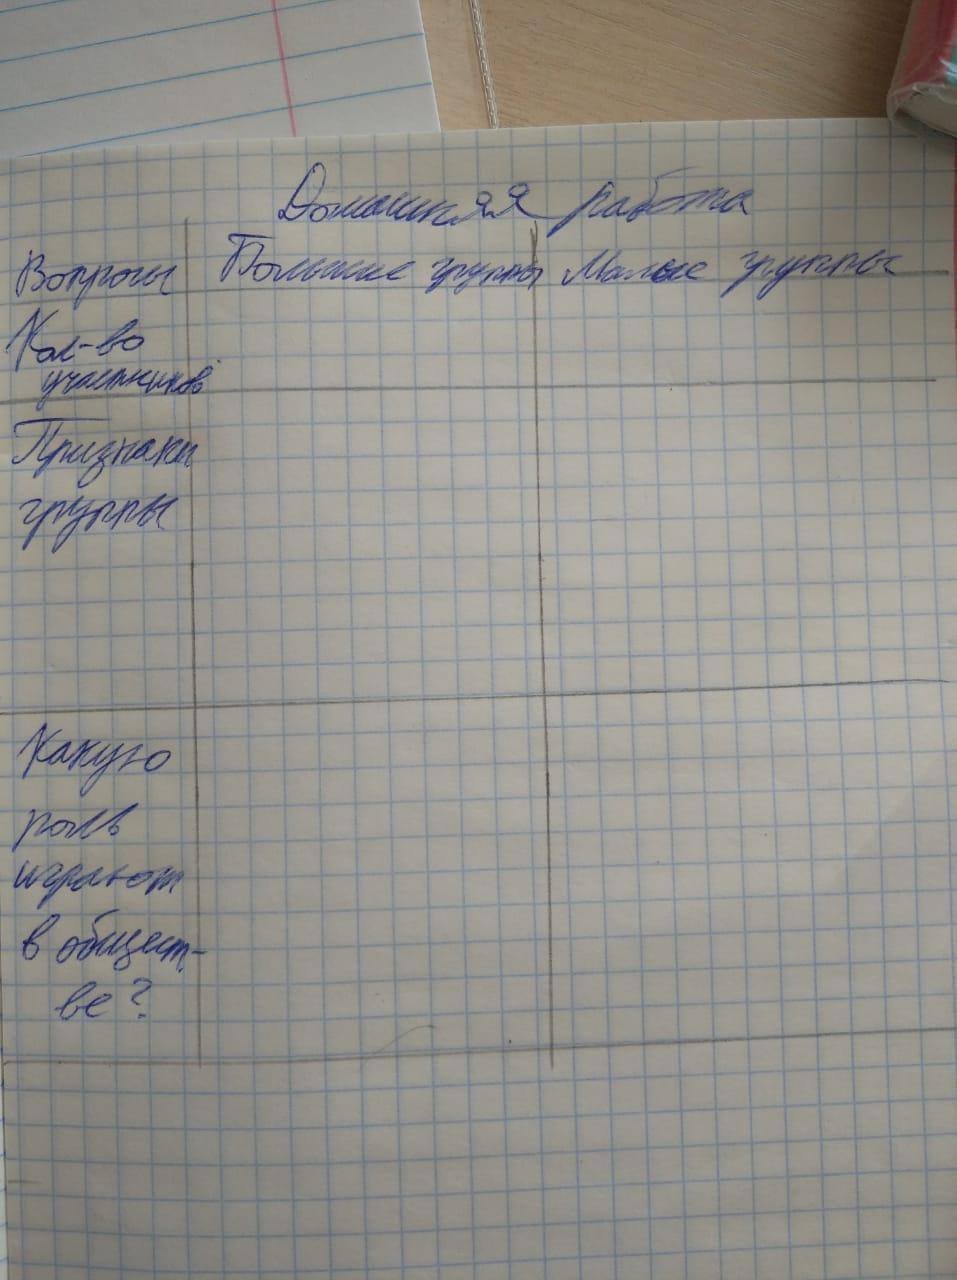 Домашняя работа
Вопросы Большие группы Малые группы
Кол-во
участников
Признаки
группы
Какую
роль
играют
в общест-
ве?